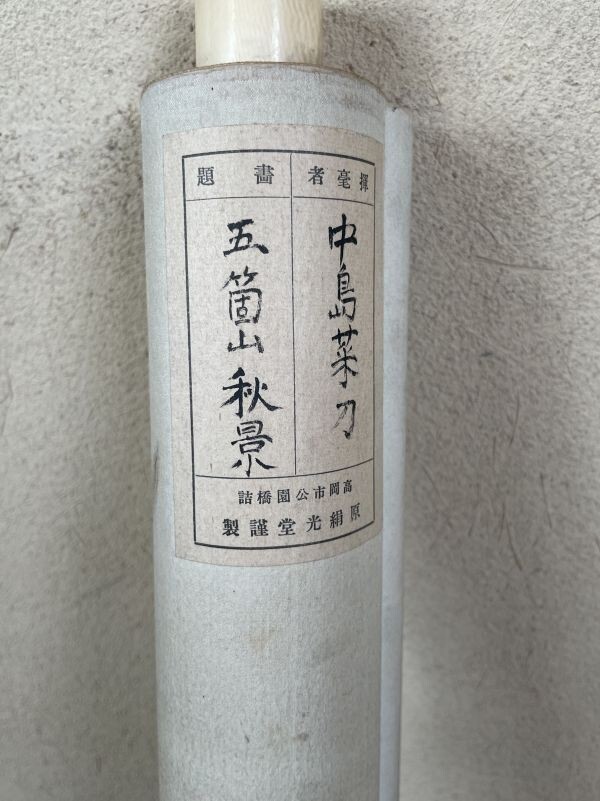 揮毫者
中島菜刀
畫題
五箇山秋景
高岡市公園橋詰
原絹光堂謹製